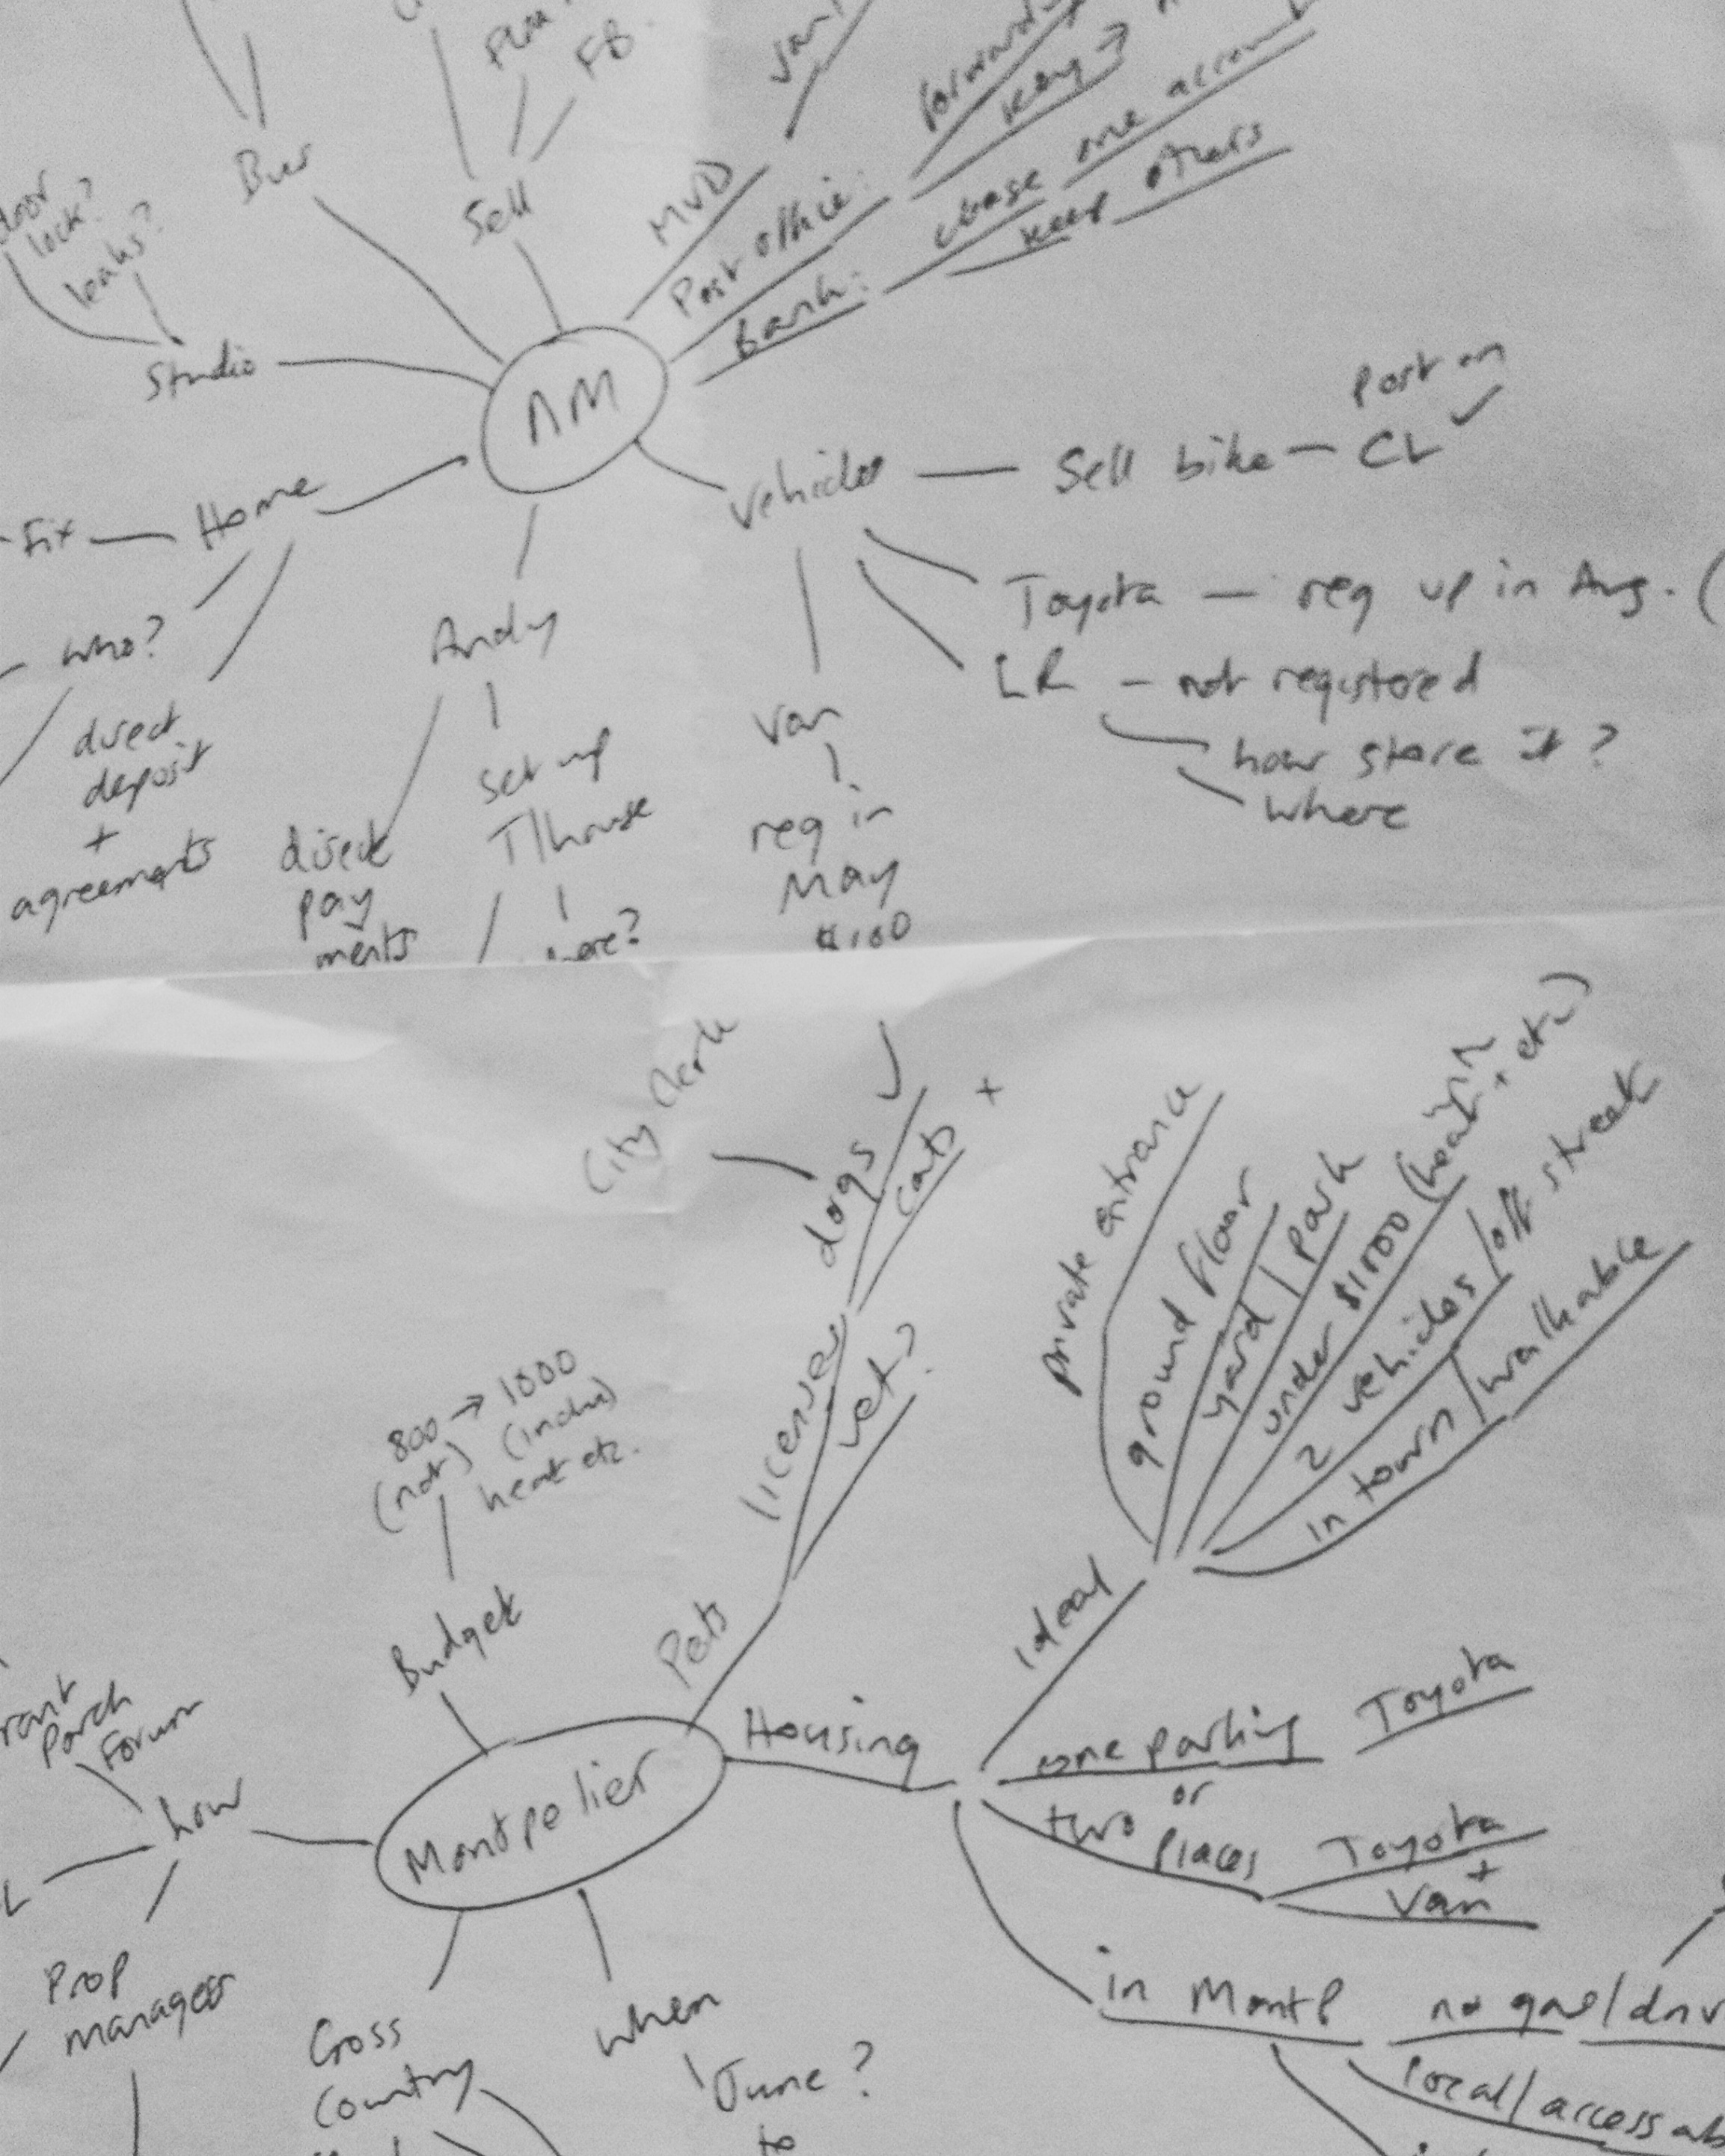 FB.
Van
Bus
Sell
MVD
Post office:
key →
Bank:
close one account
keep others
door
lock?
leaks?
Studio
NM
Vehicles
Sell bike – post on
CL ✓
Toyota – reg up in Aug. (
LR – not registered
how store it?
where
Van
reg in
May
$100
Home
Fix
who?
direct
deposit
+
agreements
Andy
direct
pay
ments
set up
T/house
City Clerk
dogs
cats +
licenses
vet?
Pets
800 → 1000
(not) (includ)
heat etc.
Budget
Montpelier
Housing
ideal
private entrance
ground floor
yard / park
under $1000 (heat + etc)
2 vehicles / off street
in town / walkable
one parking Toyota
or
two places Toyota
+
Van
in Montp no gas/driv
local/accessab
how
Porch
Forum
Prop
manager
Cross
Country
when
June?
to